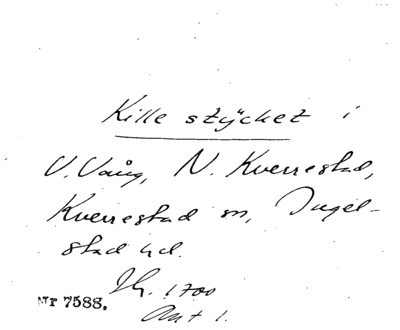 Kille stycket i
V. Vång, N. Kverrestad,
Kverrestad sn, Ingel-
stad hd.
1700
Akt 1.
Nr 7588.